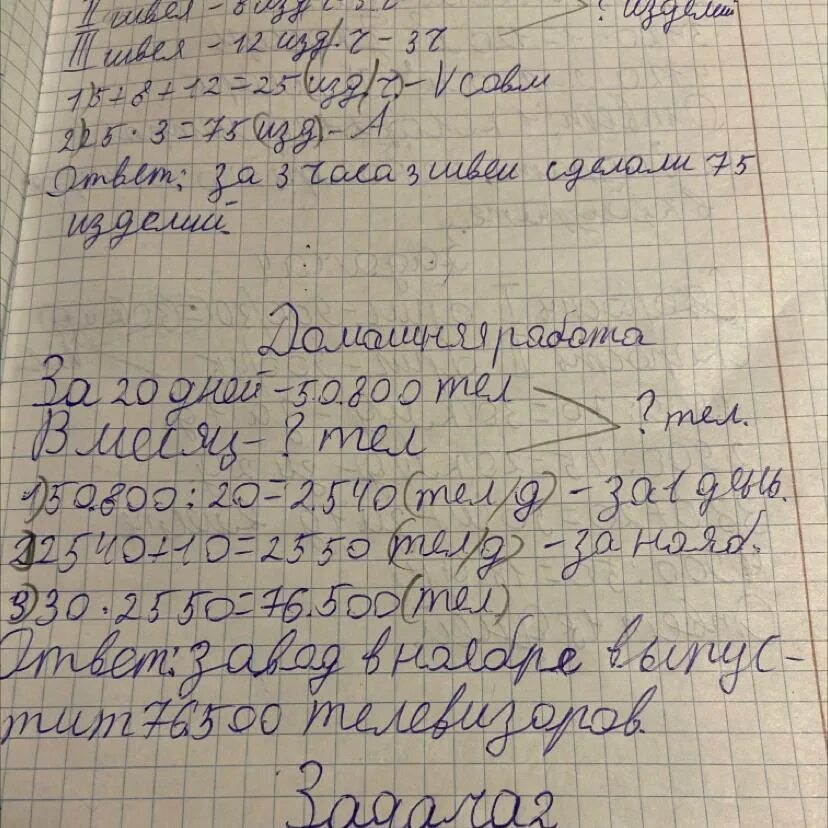 II швея - 8 изд/ч - 3ч
III швея - 12 изд/ч - 3ч
? изделий
1) 5+8+12=25 (изд/ч) - V совм
2) 25 · 3=75 (изд) - А
Ответ: за 3 часа 3 швеи сделали 75
изделий.
Домашняя работа
За 20 дней - 50.800 тел
В месяц - ? тел
? тел.
1) 50.800 : 20=2.540 (тел/д) - за 1 день.
2) 2540+10=2550 (тел/д) - за нояб.
3) 30 · 2550=76.500 (тел)
Ответ: завод в ноябре выпус-
тит 76.500 телевизоров.
Задача 2